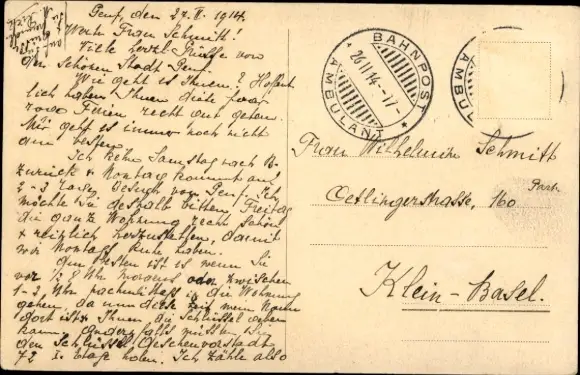 Genf, den 27. II. 1914.
Werte Frau Schmitt!
Viele herzl. Grüsse von
der schönen Stadt Genf.
Wie geht es Ihnen? Hoffent-
lich haben Ihnen diese paar
Ferien recht gut getan.
Mir geht es immer noch nicht
am besten.
Ich kehre Samstag nach B.
zurück & Montag kommt auf
2-3 Tage Besuch von Genf. Ich
möchte Sie deshalb bitten Freitag
die ganze Wohnung recht schön
& reinlich herzustellen, damit
wir Montags Ruhe haben.
Am besten ist es wenn Sie
vor ½ 8 Uhr morgens oder zwischen
1-2 Uhr nachmittags in die Wohnung
gehen, da um diese Zeit mein Mann
dort ist & Ihnen die Schlüssel geben
kann, andernfalls müssten Sie
den Schlüssel Aeschenvorstadt
72 I. Etage holen. Ich zähle also
BAHNPOST
26 II 14 - 17
AMBULANT
AMBUL
Frau Wilhelmine Schmitt
Oetlingerstrasse, 160
Part.
Klein-Basel.